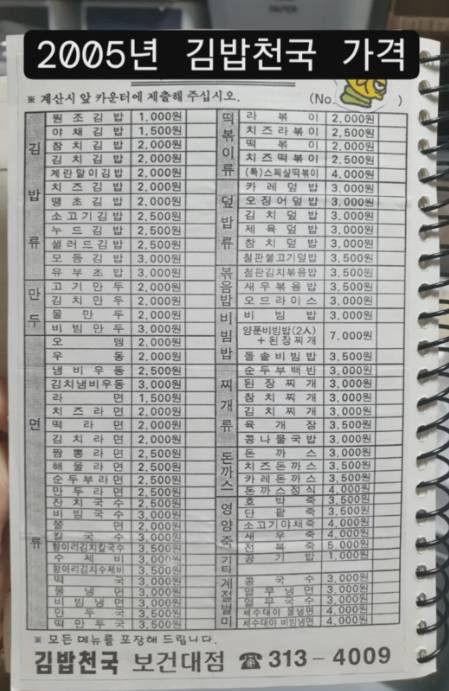 2005년 김밥천국 가격
※ 계산시 앞 카운터에 제출해 주십시오. (No. )
김밥류
원조김밥 1,000원
야채김밥 1,500원
참치김밥 2,000원
김치김밥 2,000원
계란말이김밥 2,000원
치즈김밥 2,000원
땡초김밥 2,000원
소고기김밥 2,500원
누드김밥 2,500원
샐러드김밥 2,500원
모듬김밥 3,000원
유부초밥 3,000원
만두
고기만두 2,000원
김치만두 2,000원
물만두 2,000원
비빔만두 3,000원
면류
오뎅 2,000원
우동 2,000원
냄비우동 2,500원
김치냄비우동 3,000원
라면 1,500원
치즈라면 2,000원
떡라면 2,000원
김치라면 2,000원
짬뽕라면 2,500원
해물라면 2,500원
순두부라면 2,500원
만두라면 2,500원
잔치국수 2,500원
비빔국수 3,000원
쫄면
칼국수
항아리김치칼국수 3,500원
수제비
항아리김치수제비 3,500원
떡국 3,000원
물냉면 3,000원
비빔냉면 3,000원
만두국 3,500원
떡만두국 3,500원
떡볶이류
라볶이 2,000원
치즈라볶이 2,500원
떡볶이 2,000원
치즈떡볶이 2,500원
(특)스페샬떡볶이 4,000원
덮밥류
카레덮밥 3,000원
오징어덮밥 3,000원
김치덮밥 3,000원
제육덮밥 3,000원
참치덮밥 3,000원
철판불고기덮밥 3,500원
볶음밥
철판김치볶음밥 3,500원
새우볶음밥 3,500원
오므라이스 3,000원
비빔밥
비빔밥 3,000원
양푼비빔밥(2人)
+된장찌개 7,000원
돌솥비빔밥 3,500원
찌개류
순두부백반 3,000원
된장찌개 3,000원
참치찌개 3,000원
김치찌개 3,000원
육개장 3,500원
콩나물국밥 3,000원
돈까스
돈까스 3,000원
치즈돈까스 3,500원
카레돈까스 3,500원
돈까스정식 4,000원
영양죽
호박죽 3,500원
단팥죽 3,500원
소고기야채죽 4,000원
새우죽 4,000원
전복죽 5,000원
기타
공기밥 1,000원
계절별미
콩국수 3,000원
열무냉면
열무국수 3,000원
세수대야 물냉면 4,000원
세수대야 비빔냉면 4,000원
※ 모든 메뉴를 포장해 드립니다.
김밥천국 보건대점 ☎ 313-4009